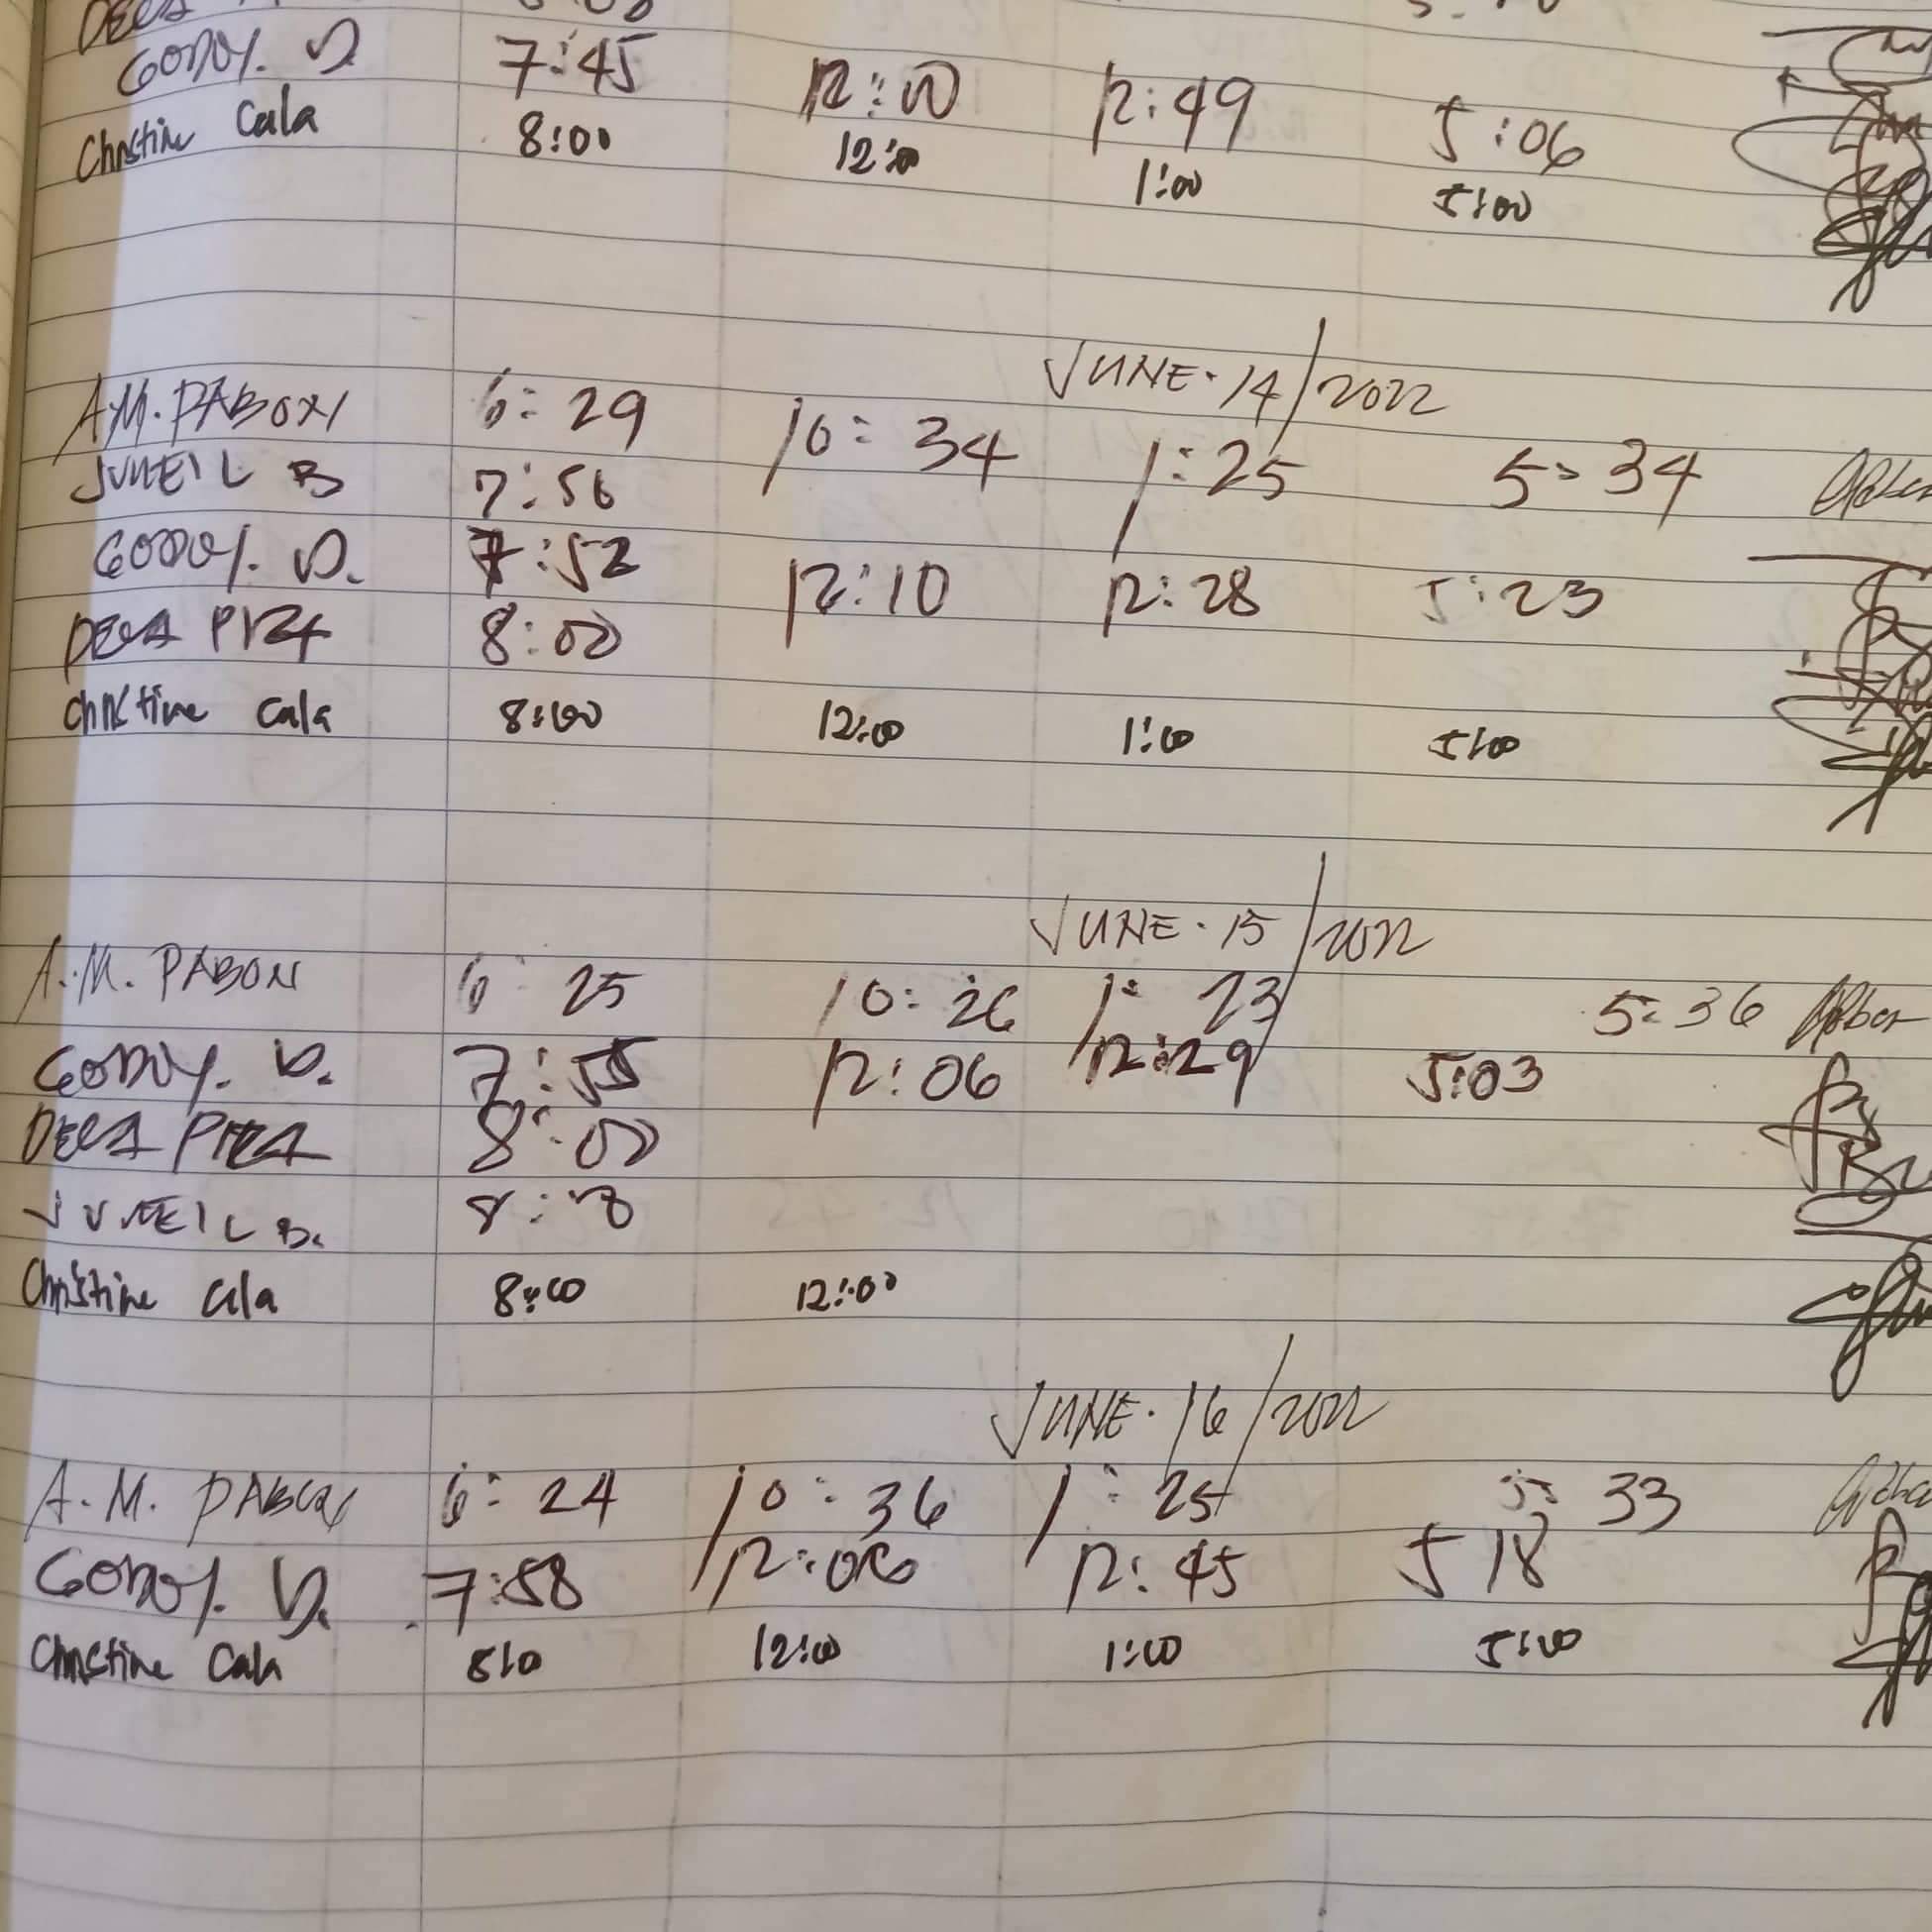 GODOY. D. 7:45 12:00 12:49 5:06
Christine Cala 8:00 12:00 1:00 5:00
JUNE. 14/2022
A.M. PABON 6: 29 10: 34 1:25 5: 34
JUNEIL B 7:56
GODOY. D. 7:52 12:10 12:28 5:23
8:00
Christine Cala 8:00 12:00 1:00 5:00
JUNE. 15/2022
A.M. PABON 6: 25 10: 26 1: 23 5:36
GODOY. D. 7:55 12:06 12:29 5:03
8:00
JUNEIL B.
Christine Cala 8:00 12:00
JUNE. 16/2022
A.M. PABON 6: 24 10: 36 1: 25 5: 33
GODOY. D. 7:58 12:06 12:45 5 18
Christine Cala 12:00 1:00 5:00